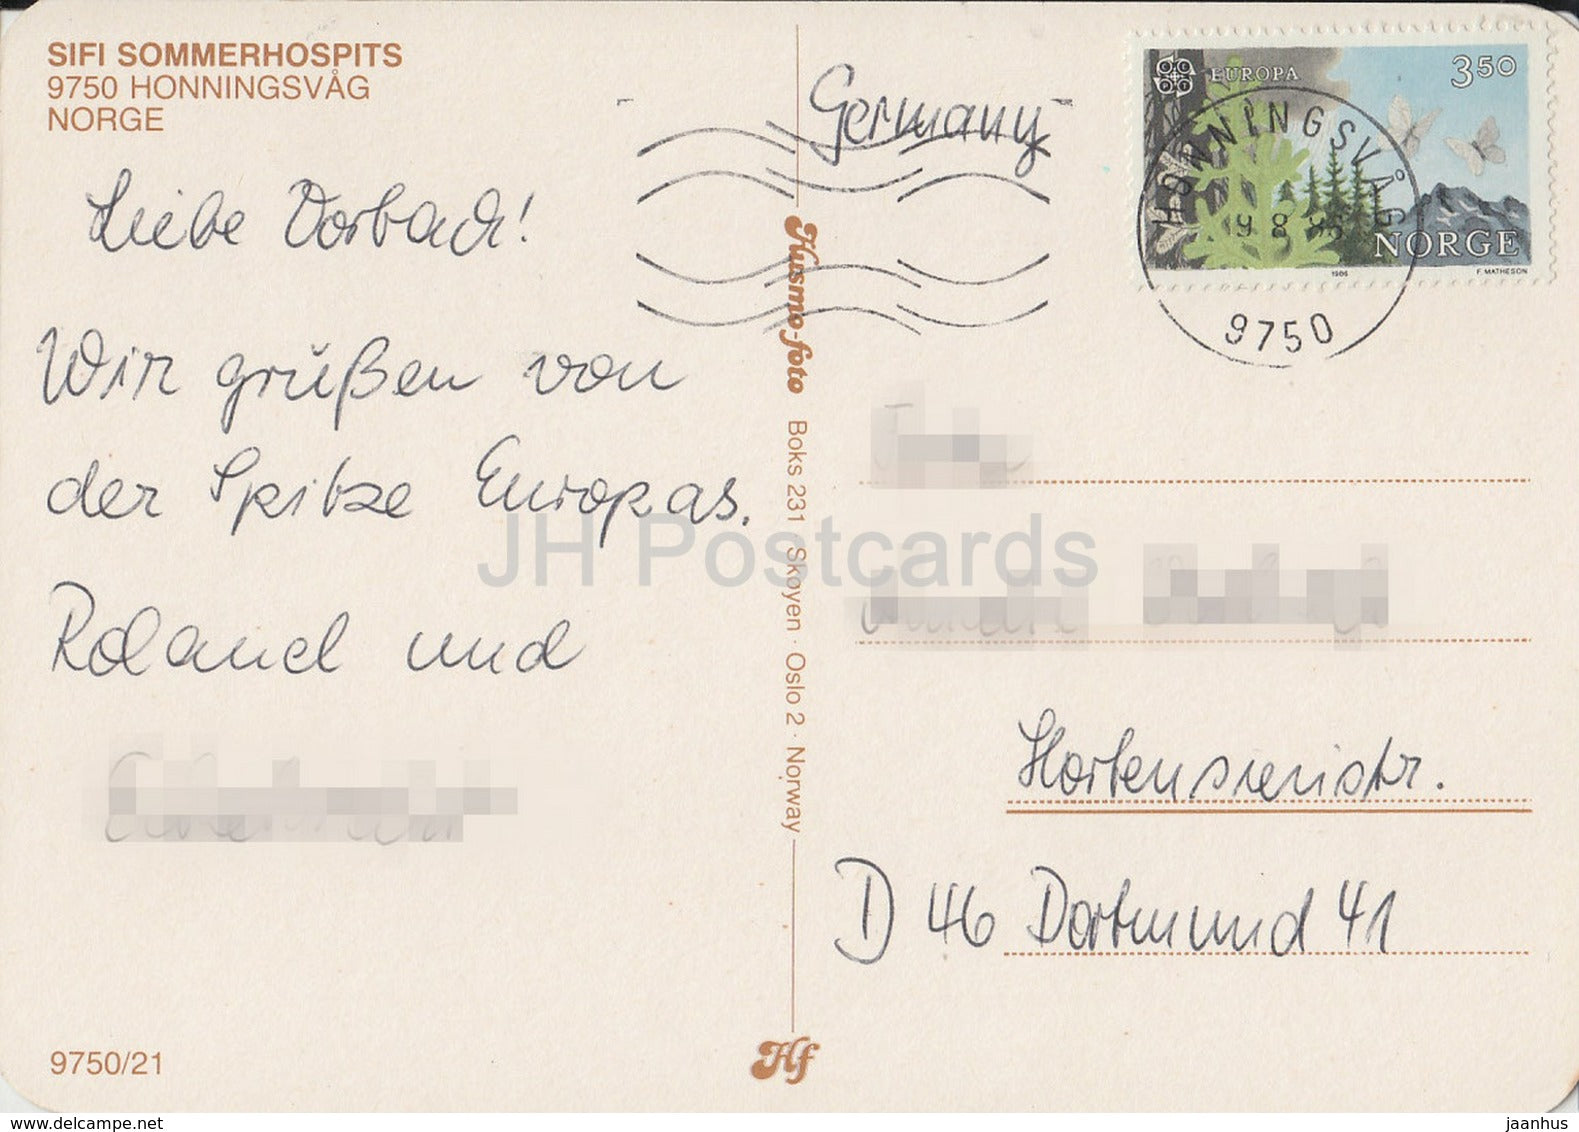 SIFI SOMMERHOSPITS
9750 HONNINGSVÅG
NORGE
Liebe Vorbach!
Wir grüßen von
der Spitze Europas.
Roland und
9750/21
Husmo-foto Boks 231 · Skøyen · Oslo 2 · Norway
Hf
Germany
EUROPA
3 50
NORGE
1986
F. MATHESON
HONNINGSVÅG
9 8 86
9750
Hortensienstr.
D 46 Dortmund 41
JH Postcards
www.delcampe.net
jaanhus